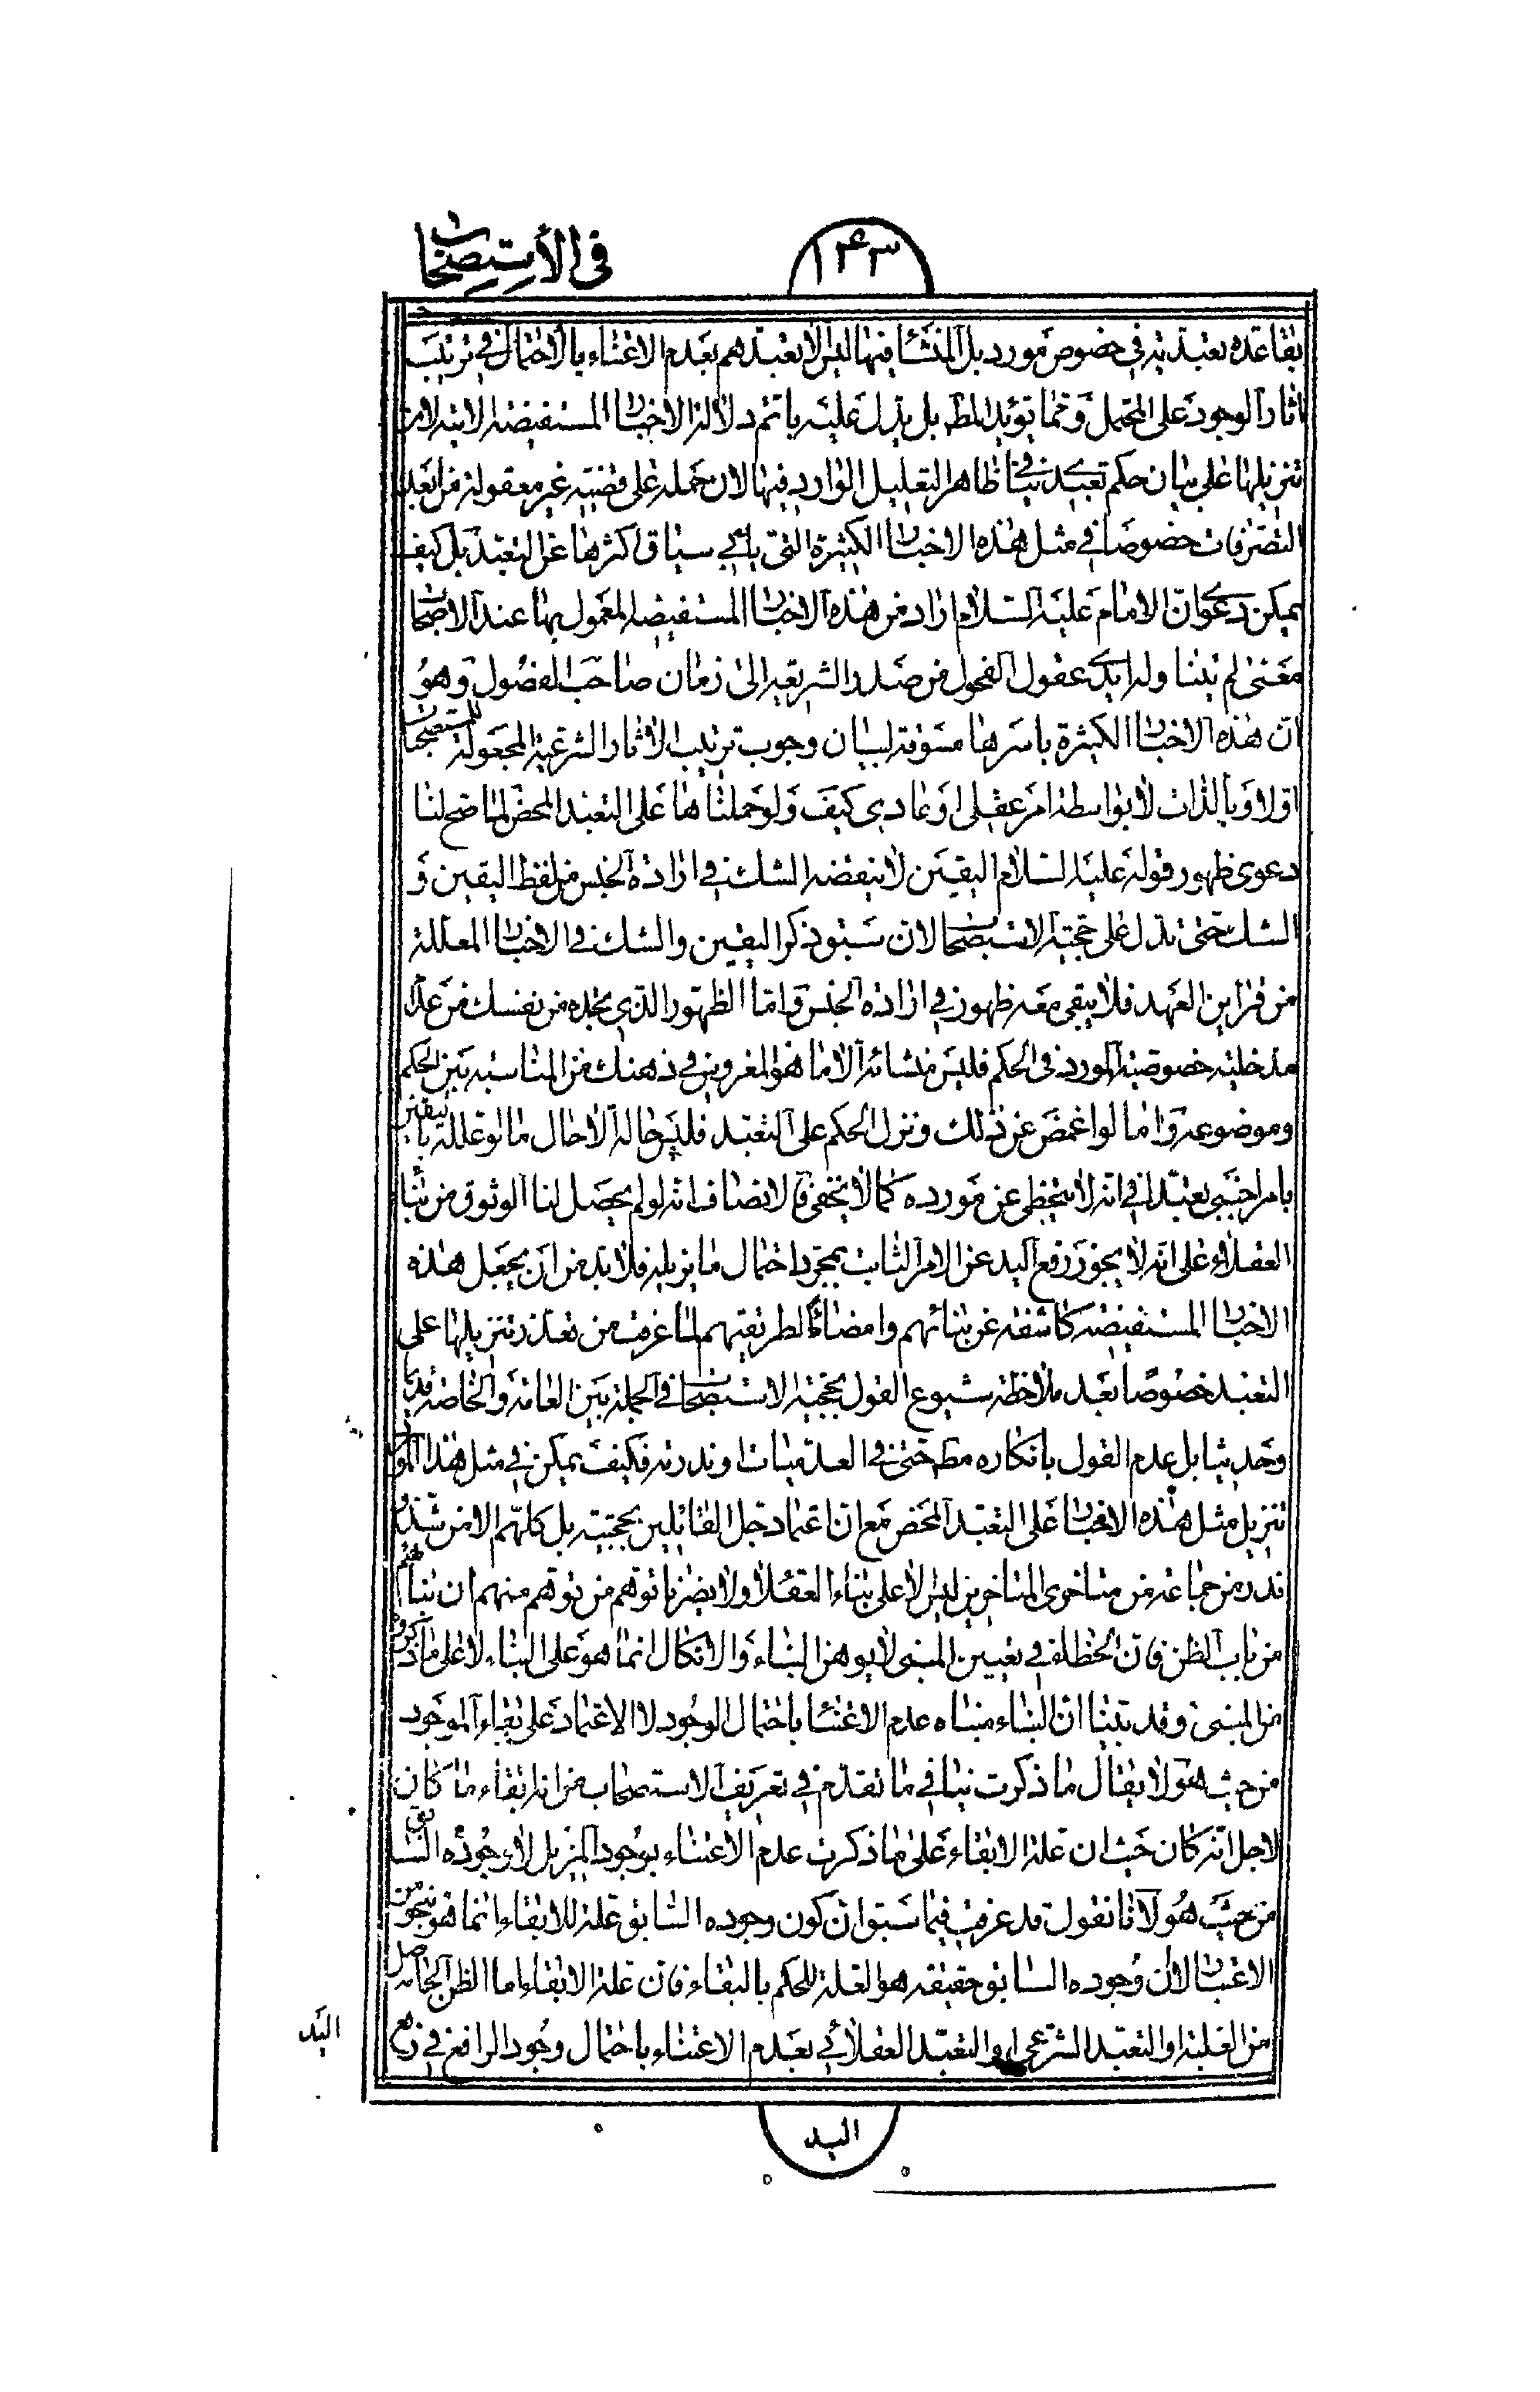 في الأستصحاب
١٤٣
بقاعدة تعبدية في خصوص مورد بل المنشأ فيها ليس الا تعبدهم بعدم الاعتناء بالاحتمال في ترتيب
اثار الوجود على المحتمل ومما يؤيد المط بل يدل عليه باتم دلالة الاخبار المستفيضة الاتية لان
تنزيلها على بيان حكم تعبدي ينافي ظاهر التعليل الوارد فيها لان حمله على قضية غير معقولة من ابعد
التصرفات خصوصا في مثل هذه الاخبار الكثيرة التي يابي سياق اكثرها عن التعبد بل كيف
يمكن دعوى ان الامام عليه السلام اراد من هذه الاخبار المستفيضة المعمول بها عند الاصحاب
معنى لم يبتنا وله ايدي عقول الفحول من صدر الشريعة الى زمان صاحب الفصول وهو
ان هذه الاخبار الكثيرة باسرها مسوقة لبيان وجوب ترتيب الاثار الشرعية المجعولة للمستصحاب
اولا وبالذات لا بواسطة امر عقلي او عادي كيف ولو حملناها على التعبد المحض لما صح لنا
دعوى ظهور قوله عليه السلام اليقين لا ينقضه الشك في ارادة الجنس من لفظ اليقين و
الشك حتى تدل على حجية الاستصحاب لان سبق ذكر اليقين والشك في الاخبار المعللة
من قراين العهد فلا يبقى معه ظهور في ارادة الجنس واما الظهور الذي تجده من نفسك من عدم
مدخلية خصوصية المورد في الحكم فليس منشائه الا ما هو المغروس في ذهنك من المناسبة بين الحكم
وموضوعه واما لو اغمض عن ذلك ونزل الحكم على التعبد فليس حاله الا حال ما لو علله باليقين
بامر اجنبي تعبدا في انه لا يتخطى عن مورده كما لا يخفى فالانصاف انه لو لم يحصل لنا الوثوق من بناء
العقلاء على انه لا يجوز رفع اليد عن الامر الثابت بمجرد احتمال ما يزيله فلا بد من ان يجعل هذه
الاخبار المستفيضة كاشفة عن بنائهم وامضاءا لطريقتهم لما عرفت من تعذر تنزيلها على
التعبد خصوصا بعد ملاحظة شيوع القول بحجية الاستصحاب في الجملة بين العامة والخاصة قديما
وحديثا بل عدم القول بانكاره مط حتى في العدميات او ندرته فكيف يمكن في مثل هذا الموارد
تنزيل مثل هذه الاخبار على التعبد المحض مع ان اعتماد جل القائلين بحجيته بل كلهم الا من شذ و
ندر من جماعة من متاخري المتاخرين ليس الا على بناء العقلاء ولا يضر ما توهم من توهم منهم ان بنائهم
من باب الظن فان الخطاء في تعيين المبنى لا يوهن البناء والاتكال انما هو على البناء لا على ما ذكروه
من المبنى وقد بينا ان البناء مبناه عدم الاعتناء باحتمال الوجود لا الاعتماد على بقاء الموجود
من حيث هو لا يقال ما ذكرت ينافي ما تقدم في تعريف الاستصحاب من انه ابقاء ما كان
لاجل انه كان حيث ان علة الابقاء على ما ذكرت عدم الاعتناء بوجود المزيل لا وجوده السابق
من حيث هو لانا نقول قد عرفت فيما سبق ان كون وجوده السابق علة للابقاء انما هو بنحو من
الاعتبار لان وجوده السابق حقيقة هو العلة للحكم بالبقاء فان علة الابقاء اما الظن الحاصل
من الغلبة او التعبد الشرعي او التعبد العقلائي بعدم الاعتناء باحتمال وجود الرافع في رفع
اليد
اليد